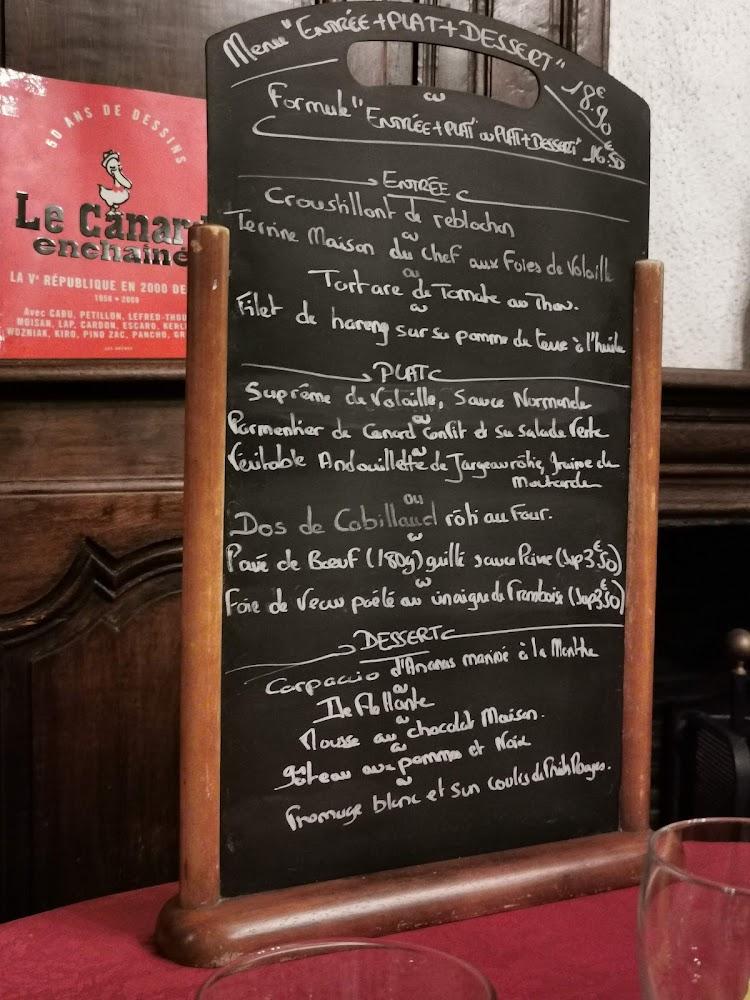 50 ANS DE DESSINS
Le Canar
enchaîné
LA Vᵉ RÉPUBLIQUE EN 2000 DE
1958 • 2008
Avec CABU, PETILLON, LEFRED-THOU
MOISAN, LAP, CARDON, ESCARO, KERL
WOZNIAK, KIRO, PINO ZAC, PANCHO, GR
Menu "ENTRÉE+PLAT+DESSERT" 18€90
ou
Formule "ENTRÉE+PLAT" ou PLAT+DESSERT" 16€50
ENTRÉE
Croustillant de reblochon
ou
Terrine Maison du Chef aux Foies de Volaille
ou
Tartare de Tomate au Thon.
ou
Filet de hareng sur sa pomme de terre à l'huile
PLAT
Suprême de Volaille, Sauce Normande
ou
Parmentier de Canard Confit et sa salade Verte
ou
Véritable Andouillette de Jargeau rôtie, graine de
Moutarde
ou
Dos de Cabillaud rôti au Four.
ou
Pavé de Bœuf (180g) grillé sauce Poivre (Sup 3€50)
ou
Foie de Veau poêlé au vinaigre de Framboise (Sup 3€50)
DESSERT
Carpaccio d'Ananas mariné à la Menthe
ou
Ile Flottante
ou
Mousse au chocolat Maison.
ou
gâteau aux pommes et Noix
ou
Fromage blanc et son coulis de Fruits Rouges.